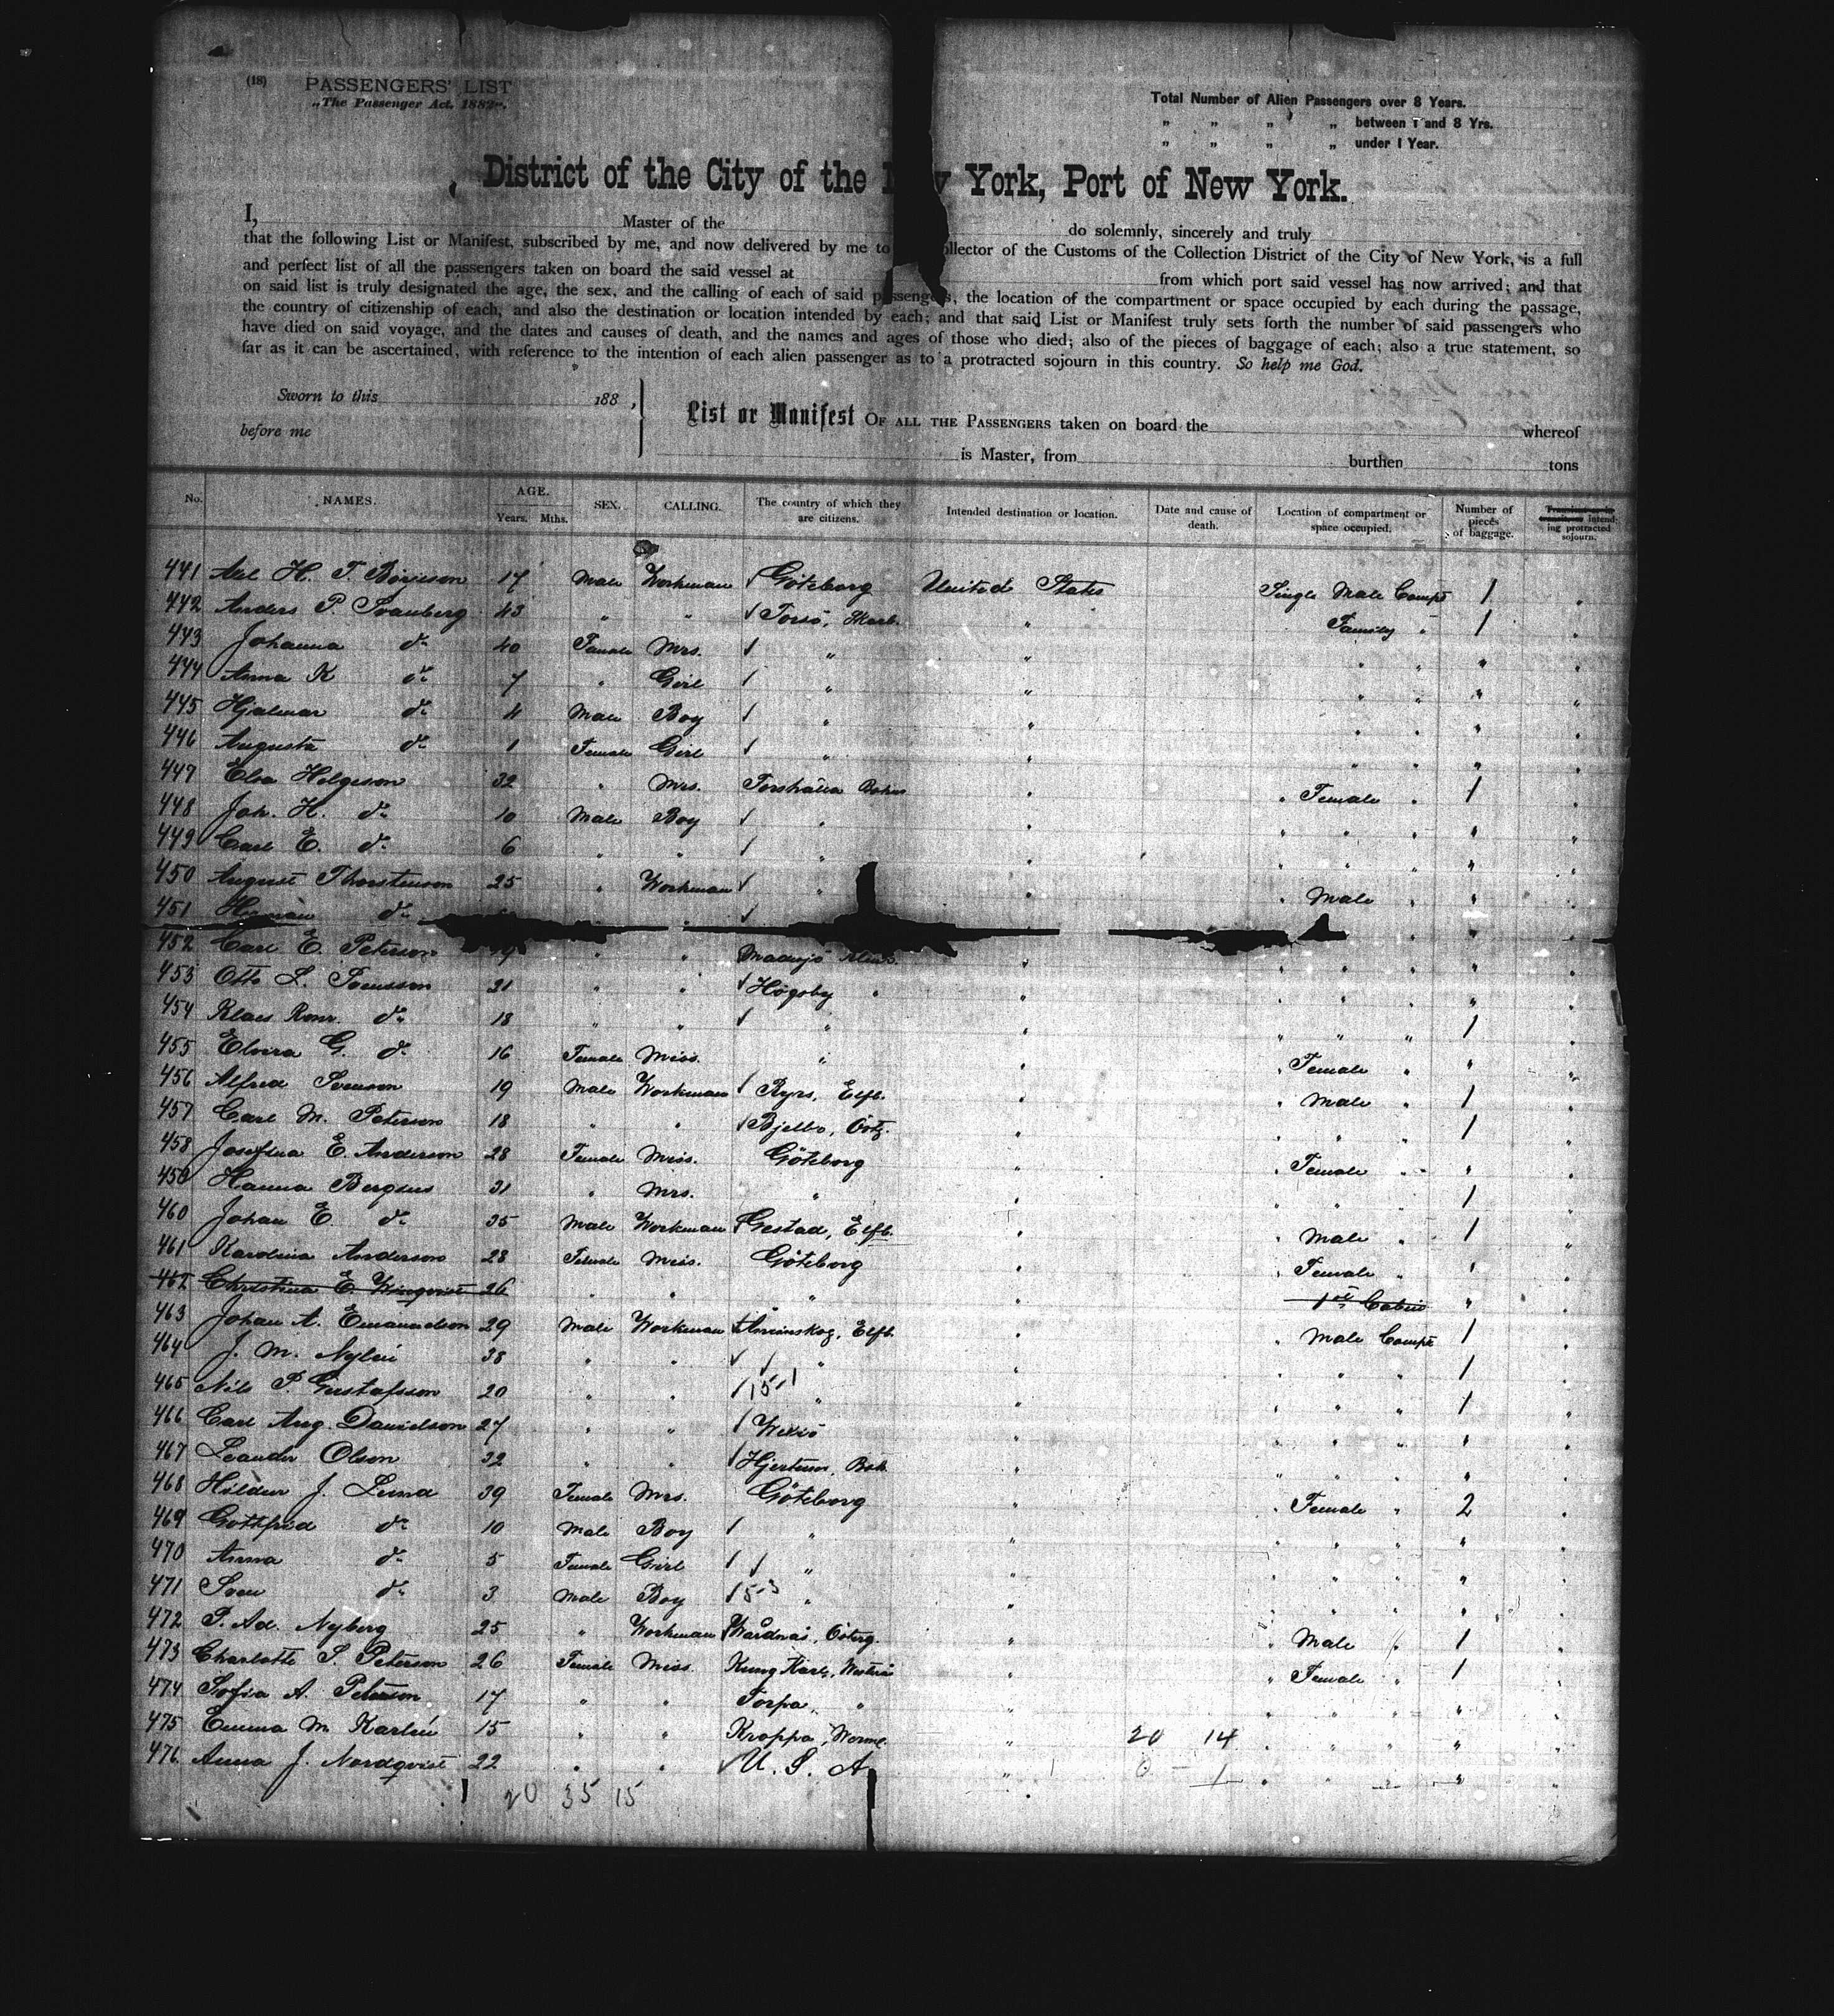 (18) PASSENGERS' LIST
„The Passenger Act. 1882“.
Total Number of Alien Passengers over 8 Years.
„ „ „ „ between 1 and 8 Yrs.
„ „ „ „ under 1 Year.
District of the City of the York, Port of New York.
I, Master of the do solemnly, sincerely and truly
that the following List or Manifest, subscribed by me, and now delivered by me to ollector of the Customs of the Collection District of the City of New York, is a full
and perfect list of all the passengers taken on board the said vessel at from which port said vessel has now arrived; and that
on said list is truly designated the age, the sex, and the calling of each of said passengers, the location of the compartment or space occupied by each during the passage,
the country of citizenship of each, and also the destination or location intended by each; and that said List or Manifest truly sets forth the number of said passengers who
have died on said voyage, and the dates and causes of death, and the names and ages of those who died; also of the pieces of baggage of each; also a true statement, so
far as it can be ascertained, with reference to the intention of each alien passenger as to a protracted sojourn in this country. So help me God.
Sworn to this 188 ,
before me
List or Manifest OF ALL THE PASSENGERS taken on board the whereof
is Master, from burthen tons
No. NAMES. AGE. Years. Mths. SEX. CALLING. The country of which they are citizens. Intended destination or location. Date and cause of death. Location of compartment or space occupied. Number of pieces of baggage. Transient or in transitu or intending protracted sojourn.
441 H. T. Börjeson 17 Male Workman Göteborg United States Single Male Compt 1 "
442 Anders P. Svanberg 43 " " Torsö, Skarb. " Family " 1 "
443 Johanna do 40 Female Mrs. " " " " " "
444 Anna K do 7 " Girl " " " " " "
445 Hjalmar do 4 Male Boy " " " " " "
446 Augusta do 1 Female Girl " " " " " "
447 Elsa Helgeson 32 " Mrs. Torshälla Bohus " " Female " 1 "
448 Joh. H. do 10 Male Boy " " " " " " "
449 Carl E. do 6 " " " " " " " " "
450 August Thorstenson 25 " Workman " " " Male " " "
451 Herman do " " "
452 Carl E. Peterson 19 " " " " " " " "
453 Otto L. Svensson 21 " " Högsby " " " " " " "
454 Klaes Rom. do 18 " " " " " " " 1 "
455 Elvira G. do 16 Female Miss. " " " Female " " "
456 Alfred Svenson 19 Male Workman Ryrs, Elfb. " " Male " 1 "
457 Carl M. Peterson 18 " " Bjelbo, Östg. " " " " 1 "
458 Josefina E. Anderson 28 Female Miss. Göteborg " " Female " " "
459 Hanna Bergsus 31 " Mrs. " " " " " 1 "
460 Johan E do 35 Male Workman Gestad, Elfb. " " Male " 1 "
461 Karolina Anderson 28 Female Miss. Göteborg " " Female " " "
462 Christina E. Wingqvist 26 " " " " 1st Cabin "
463 Johan A. Emanuelson 29 Male Workman Åminskog, Elfb. " " Male Compt 1 "
464 J. M. Nylén 38 " " " " " " " 1 "
465 Nils P. Gustafsson 20 " " 15-1 " " " " " 1 "
466 Carl Aug. Danielson 27 " " Wexiö " " " " " "
467 Leander Olson 32 " " Hjertum, Boh. " " " " " "
468 Hildur J. Lund 39 Female Mrs. Göteborg " " Female " 2 "
469 Gottfrid do 10 Male Boy " " " " " " "
470 Anna do 5 Female Girl " " " " " " "
471 Sven do 3 Male Boy 15-3 " " " " " " "
472 P. Ad. Nyberg 25 " Workman Wårdnäs, Österg. " " Male " 1 "
473 Charlotte S. Peterson 26 Female Miss Kung Karls, Westerås " " Female " 1 "
474 Sofia A. Peterson 17 " " Torpa, " " " " " " "
475 Emma M Karlén 15 " " Kroppa, Werml. " 20 14 " " " " "
476 Anna J. Nordqvist 22 " " U. S. A " 0 - 1 " " " " "
20 35 15